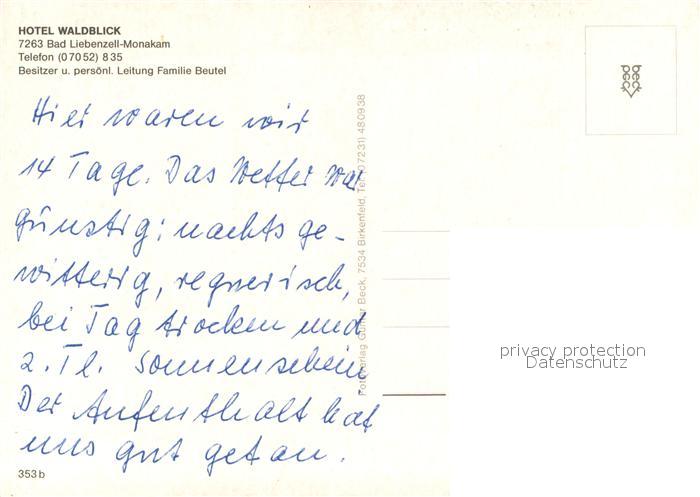 HOTEL WALDBLICK
7263 Bad Liebenzell-Monakam
Telefon (07052) 835
Besitzer u. persönl. Leitung Familie Beutel
Hier waren wir
14 Tage. Das Wetter war
günstig: nachts ge-
witterig, regnerisch,
bei Tag trocken und
z. Tl. Sonnenschein
Der Aufenthalt hat
uns gut getan.
353b
Fotoverlag Günter Beck, 7534 Birkenfeld, Tel. (07231) 480938
beck
privacy protection
Datenschutz